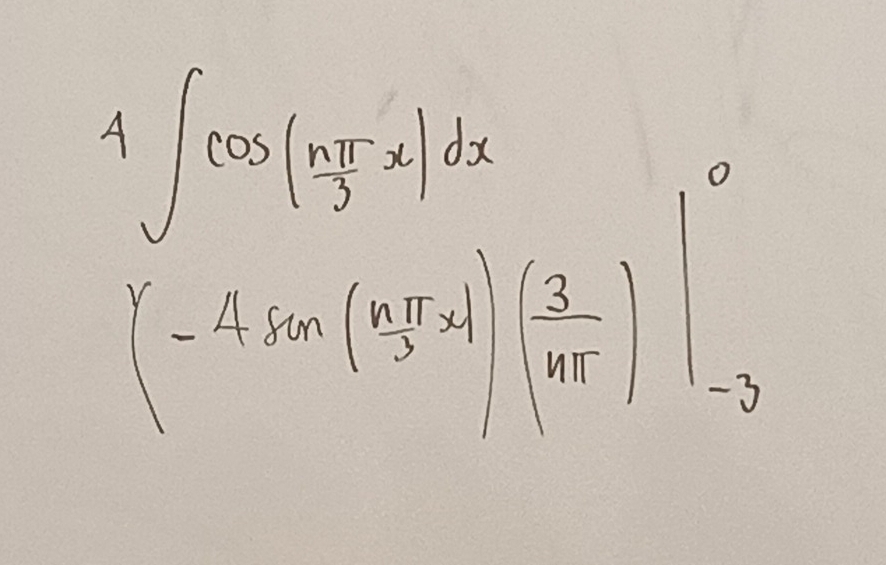 4 ∫ cos(nπ/3 x) dx
(-4 sin(nπ/3 x))(3/nπ) |⁰₋₃